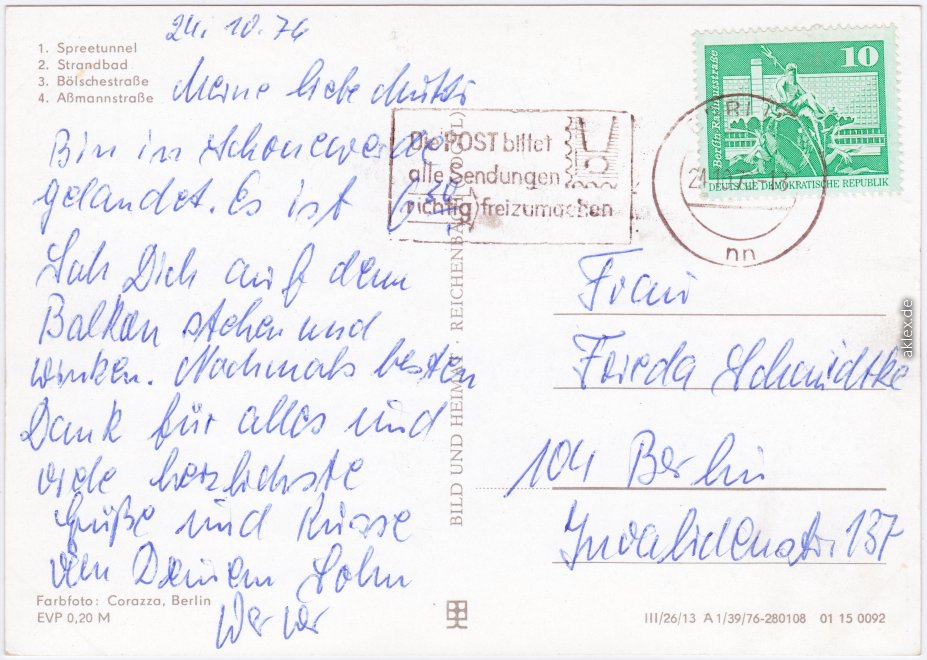 24. 10. 76
1. Spreetunnel
2. Strandbad
3. Bölschestraße
4. Aßmannstraße
Meine liebe Mutti
Bin in Schöneweide
gelandet. Es ist
Sah Dich auf dem
Balkon stehen und
winken. Nochmals besten
Dank für alles und
viele herzlichste
Grüße und Küsse
von Deinem Sohn
Farbfoto: Corazza, Berlin
EVP 0,20 M
BILD UND HEIMAT · REICHENBACH
Die POST bittet
alle Sendungen
(richtig) freizumachen
10
Berlin-Rathausstraße
DEUTSCHE DEMOKRATISCHE REPUBLIK
Frau
Frieda Schmidtke
104 Berlin
Invalidenstr. 137
III/26/13 A 1/39/76-280108 01 15 0092
aklex.de